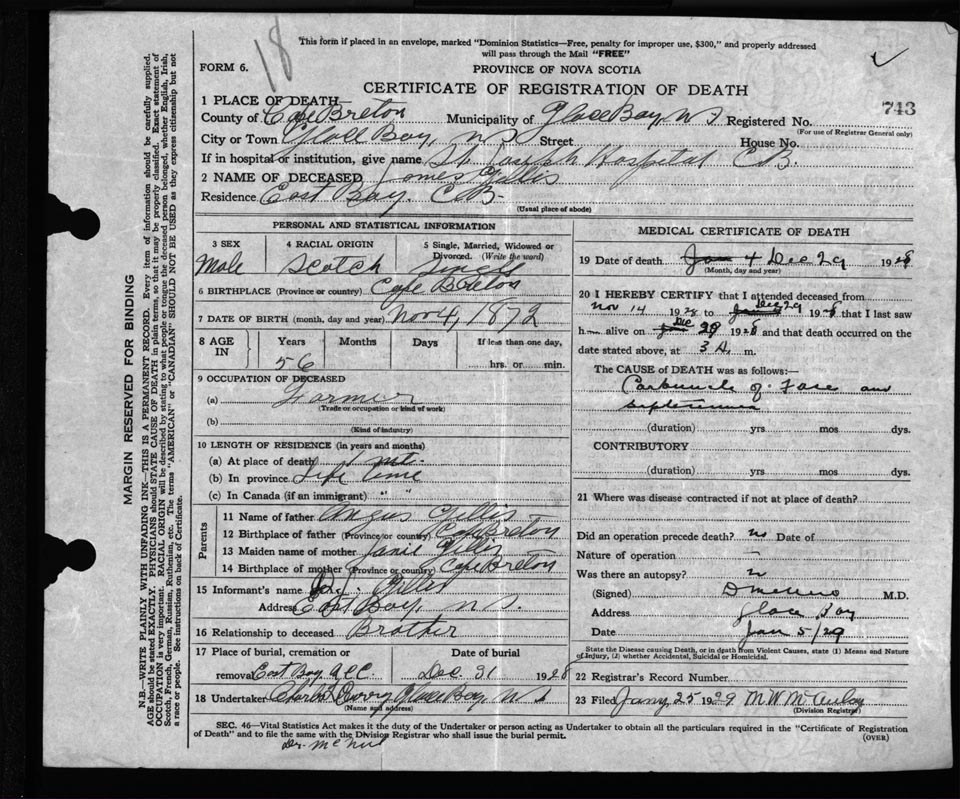 18
This form if placed in an envelope, marked "Dominion Statistics—Free, penalty for improper use, $300," and properly addressed
will pass through the Mail "FREE"
FORM 6.
PROVINCE OF NOVA SCOTIA
CERTIFICATE OF REGISTRATION OF DEATH
743
1 PLACE OF DEATH
County of Cape Breton Municipality of Glace Bay, N S Registered No.
(For use of Registrar General only)
City or Town Glace Bay, N S Street House No.
If in hospital or institution, give name St. Joseph Hospital C B.
2 NAME OF DECEASED James Gillis
Residence East Bay. C B-
(Usual place of abode)
MARGIN RESERVED FOR BINDING
N.B.—WRITE PLAINLY WITH UNFADING INK—THIS IS A PERMANENT RECORD. Every item of information should be carefully supplied.
AGE should be stated EXACTLY. PHYSICIANS should STATE CAUSE OF DEATH in plain terms, so that it may be properly classified. Exact statement of
OCCUPATION is very important. RACIAL ORIGIN will be described by stating to what people or tongue the deceased person belonged, whether English, Irish,
Scotch, French, German, Russian, Ruthenian, etc. The terms "AMERICAN" or "CANADIAN" SHOULD NOT BE USED as they express citizenship but not
a race or people. See instructions on back of Certificate.
PERSONAL AND STATISTICAL INFORMATION
3 SEX 4 RACIAL ORIGIN 5 Single, Married, Widowed or
Divorced. (Write the word)
Male Scotch Single
6 BIRTHPLACE (Province or country) Cape Breton
7 DATE OF BIRTH (month, day and year) Nov 4, 1872
8 AGE IN Years Months Days If less than one day,
56 hrs. or min.
9 OCCUPATION OF DECEASED
(a) Farmer
(Trade or occupation or kind of work)
(b)
(Kind of industry)
10 LENGTH OF RESIDENCE (in years and months)
(a) At place of death
(b) In province Life time
(c) In Canada (if an immigrant) " "
Parents
11 Name of father Angus Gillis
12 Birthplace of father (Province or country) Cape Breton
13 Maiden name of mother Janie Gillis
14 Birthplace of mother (Province or country) Cape Breton
15 Informant's name Gillis
Address East Bay, N S.
16 Relationship to deceased Brother
17 Place of burial, cremation or
removal East Bay Dec 31 1928
18 Undertaker Glace Bay, N S
(Name and address)
MEDICAL CERTIFICATE OF DEATH
19 Date of death Jan 4 Dec 29 1928
(Month, day and year)
20 I HEREBY CERTIFY that I attended deceased from
Nov 14 1928 to Dec 29 1928 that I last saw
h alive on Dec 29 1928 and that death occurred on the
date stated above, at 3 A. m.
The CAUSE of DEATH was as follows:—
Carbuncle of Face and
septicaemia
(duration) yrs mos dys.
CONTRIBUTORY
(duration) yrs mos dys.
21 Where was disease contracted if not at place of death?
Did an operation precede death? no Date of
Nature of operation —
Was there an autopsy? n
(Signed) M.D.
Address Glace Bay
Date Jan 5/29
State the Disease causing Death, or in death from Violent Causes, state (1) Means and Nature
of Injury, (2) whether Accidental, Suicidal or Homicidal.
22 Registrar's Record Number
23 Filed Jany 25 1929 M W McAuley
(Division Registrar)
SEC. 46—Vital Statistics Act makes it the duty of the Undertaker or person acting as Undertaker to obtain all the particulars required in the "Certificate of Registration
of Death" and to file the same with the Division Registrar who shall issue the burial permit.
(OVER)